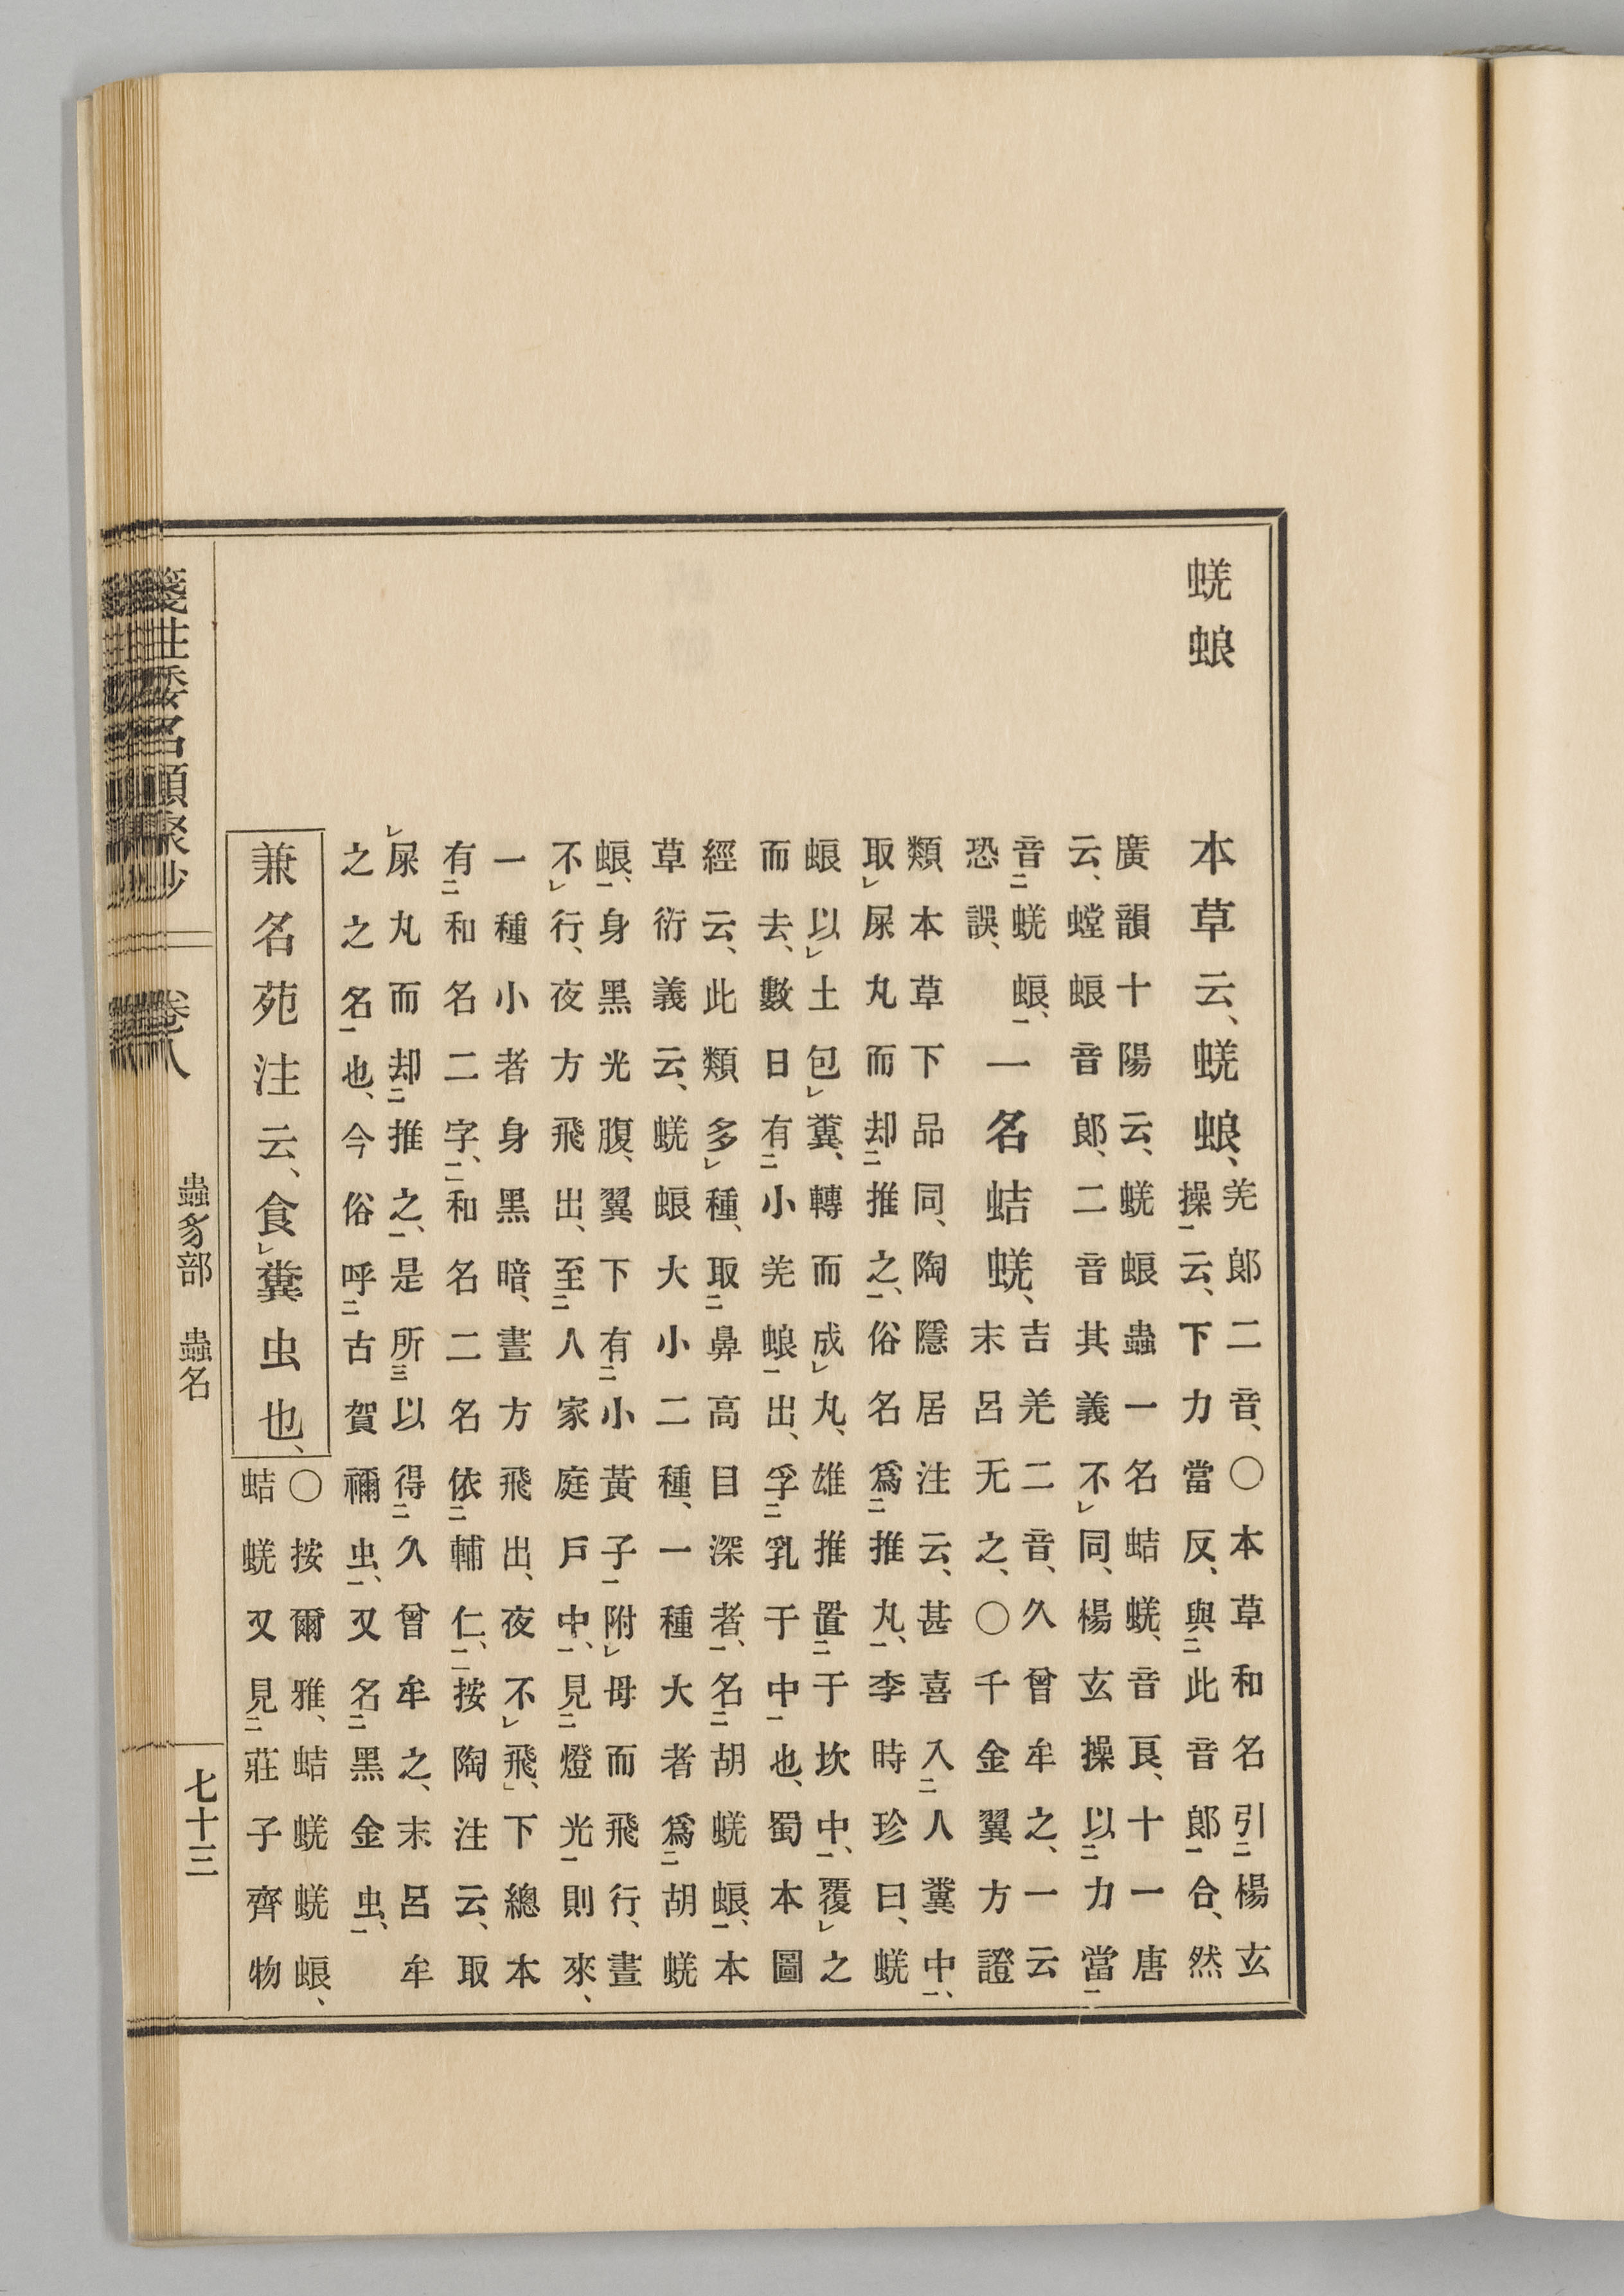 蜣蜋
本草云、蜣蜋、
羌郎二音、〇本草和名引㆓楊玄
操㆒云、下力當反、與㆓此音郎㆒合、然
廣韻十陽云、蜣蜋蟲一名蛣蜣、音良、十一唐
云、螳蜋音郎、二音其義不㆑同、楊玄操以㆓力當㆒
音㆓蜣蜋㆒、
恐誤、
一名蛣蜣、
吉羌二音、久曾牟之、一云
末呂无之、〇千金翼方證
類本草下品同、陶隱居注云、甚喜入㆓人糞中㆒、
取㆑屎丸而却㆓推之㆒、俗名爲㆓推丸㆒、李時珍曰、蜣
蜋以㆑土包㆑糞、轉而成㆑丸、雄推置㆓于坎中㆒、覆㆑之
而去、數日有㆓小羌蜋㆒出、孚㆓乳于中㆒也、蜀本圖
經云、此類多㆑種、取㆓鼻高目深者㆒、名㆓胡蜣蜋㆒、本
草衍義云、蜣蜋大小二種、一種大者爲㆓胡蜣
蜋㆒、身黑光腹、翼下有㆓小黃子㆒附㆑母而飛行、晝
不㆑行、夜方飛出、至㆓人家庭戶中㆒、見㆓燈光㆒則來、
一種小者身黑暗、晝方飛出、夜不㆑飛、下總本
有㆓和名二字㆒、和名二名依㆓輔仁㆒、按陶注云、取
㆑屎丸而却㆓推之㆒、是所㆔以得㆓久曾牟之、末呂牟
之之名㆒也、今俗呼㆓古賀禰虫㆒、又名㆓黑金虫㆒、
兼名苑注云、食㆑糞虫也、
〇按爾雅、蛣蜣蜣蜋、
蛣蜣又見㆓莊子齊物
箋注倭名類聚抄 卷八 蟲豸部 蟲名 七十三